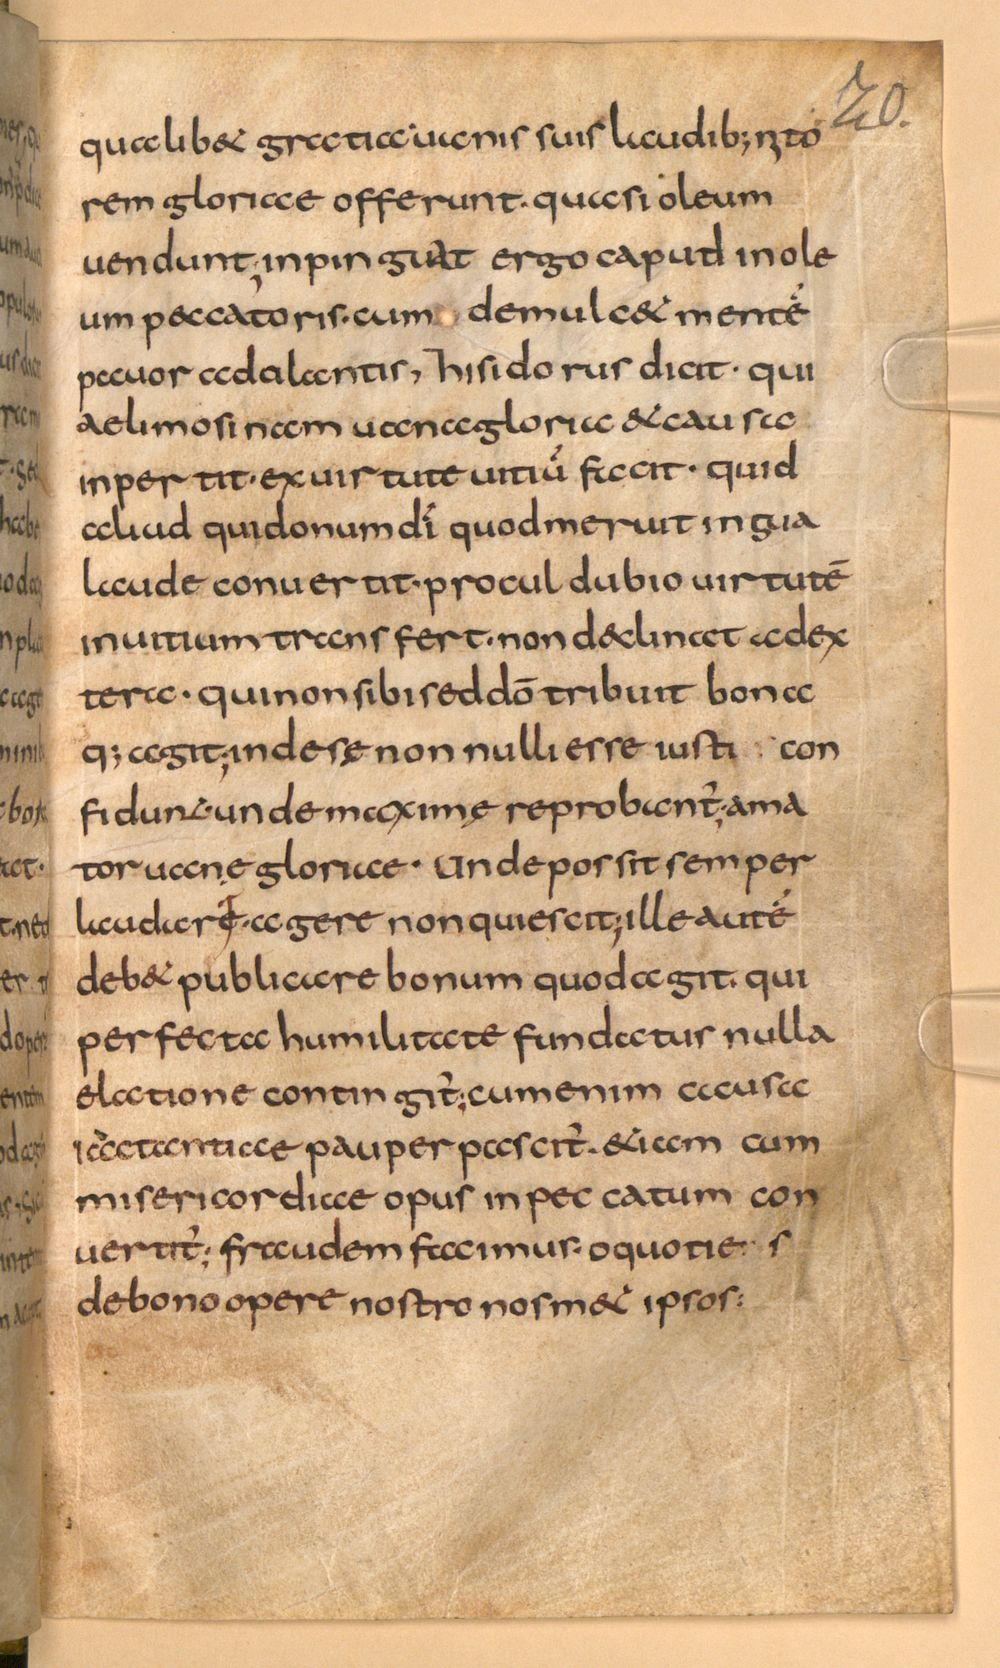 20.
qualib& gratia uanis suis laudib; nito
rem gloriae offerunt. quasi oleum
uendunt; inpinguat ergo capud in ole
um peccatoris. cum demulc& mentē
fauor adulantis, hisidorus dicit. qui
aelimosinam uana gloria & causa
inpertit. ex uirtute uitiū facit. quid
aliud qui donum dī quod meruit in sua
laude conuertit. procul dubio uirtutē
in uitium transfert. non declinat ad ex
tera. qui non sibi sed dō tribuit bona
q; agit; inde sę non nulli esse iusti con
fidunt. unde maximę reprobant̄; ama
tor uanę gloriae. Unde possit semper
laudarę. agere non quiescit; ille autē
deb& publicare bonum quod agit. qui
perfecta humilitate fundatus nulla
elatione contingit̄; cum enim causa
iactantiae pauper pascit̄. &iam cum
misericordiae opus in peccatum con
uertit̄; fraudem facimus. o quotie s
de bono opere nostro nosm& ipsos: